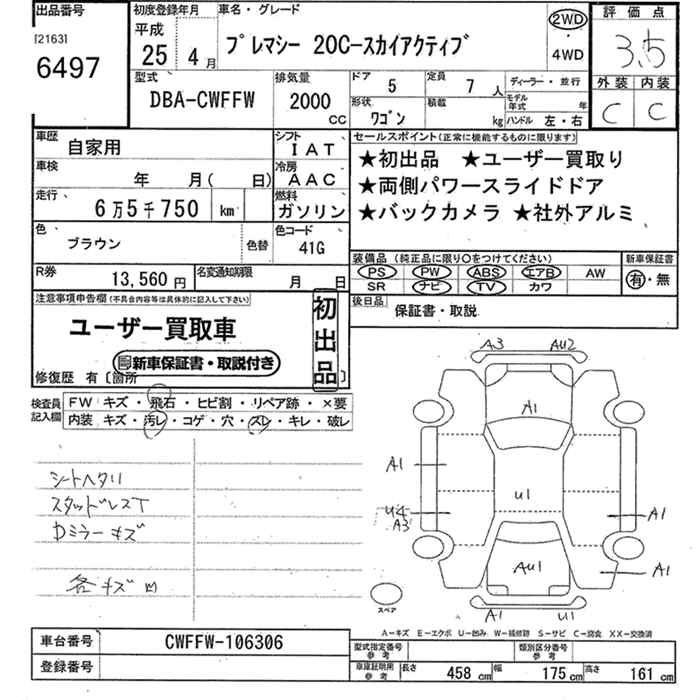 出品番号
[2163]
6497
初度登録年月
平成
25年 4月
車名・グレード
プレマシー 20C-スカイアクティブ
2WD
・
4WD
評価点
3.5
外装 内装
C C
型式
DBA-CWFFW
排気量
2000
CC
ドア 5
定員 7人
形状 ワゴン
積載 kg
ディーラー・並行
モデル年式 年
ハンドル 左・右
車歴 自家用
シフト IAT
車検 年 月( 日)
冷房 AAC
走行 6万5千750 km
燃料 ガソリン
色 ブラウン
色替
色コード 41G
R券 13,560円
名変通知期限 月 日
セールスポイント(正常に機能するものに限ります)
★初出品 ★ユーザー買取り
★両側パワースライドドア
★バックカメラ ★社外アルミ
装備品(純正品に限り〇をつけてください)
PS PW ABS エアB AW
SR ナビ TV カワ
新車保証書
有・無
後日品 保証書・取説
注意事項申告欄(不具合内容等は具体的に記入して下さい)
ユーザー買取車
新車保証書・取説付き
初出品
修復歴 有 〔箇所 〕
検査員記入欄
FW キズ・飛石・ヒビ割・リペア跡・×要
内装 キズ・汚レ・コゲ・穴・スレ・キレ・破レ
シートヘタリ
スタッドレスT
Dミラーキズ
各キズ凹
A3 AU2
A1
A1
U1
U4
A3
A1
AU1
A1
A1 U1
スペア
A-キズ E-エクボ U-凹み W-補修跡 S-サビ C-腐食 XX-交換済
車台番号 CWFFW-106306
登録番号
型式指定番号参考
類別区分番号参考
車庫証明用参考
長さ 458 cm
幅 175 cm
高さ 161 cm